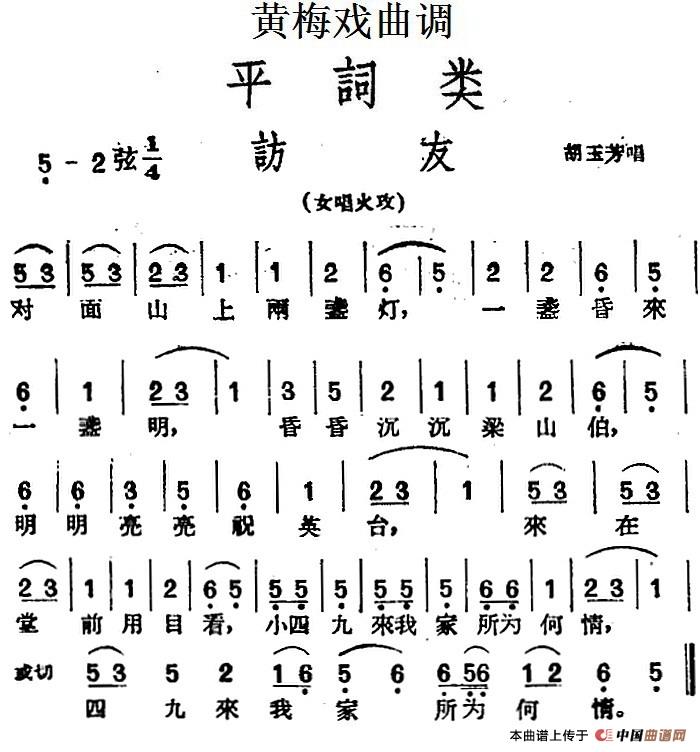 黄梅戏曲调
平詞类
5 - 2 弦 1/4 訪友 胡玉芳唱
(女唱火攻)
5 3 | 5 3 | 2 3 | 1 | 1 | 2 | 6 | 5 | 2 | 2 | 6 | 5 |
对面山上兩盞灯,一盞昏來
6 | 1 | 2 3 | 1 | 3 | 5 | 2 | 1 | 1 | 2 | 6 | 5 |
一盞明,昏昏沉沉梁山伯,
6 | 6 | 3 | 5 | 6 | 1 | 2 3 | 1 | 5 3 | 5 3 |
明明亮亮祝英台,來在
2 3 | 1 | 1 | 2 | 6 5 | 5 5 | 5 | 5 5 | 5 | 6 6 | 1 | 2 3 | 1 |
堂前用目看,小四九來我家所为何情,
或切 5 3 5 2 1 6 5 6 6 56 1 2 6 5
四九來我家所为何情。
本曲谱上传于 中国曲谱网